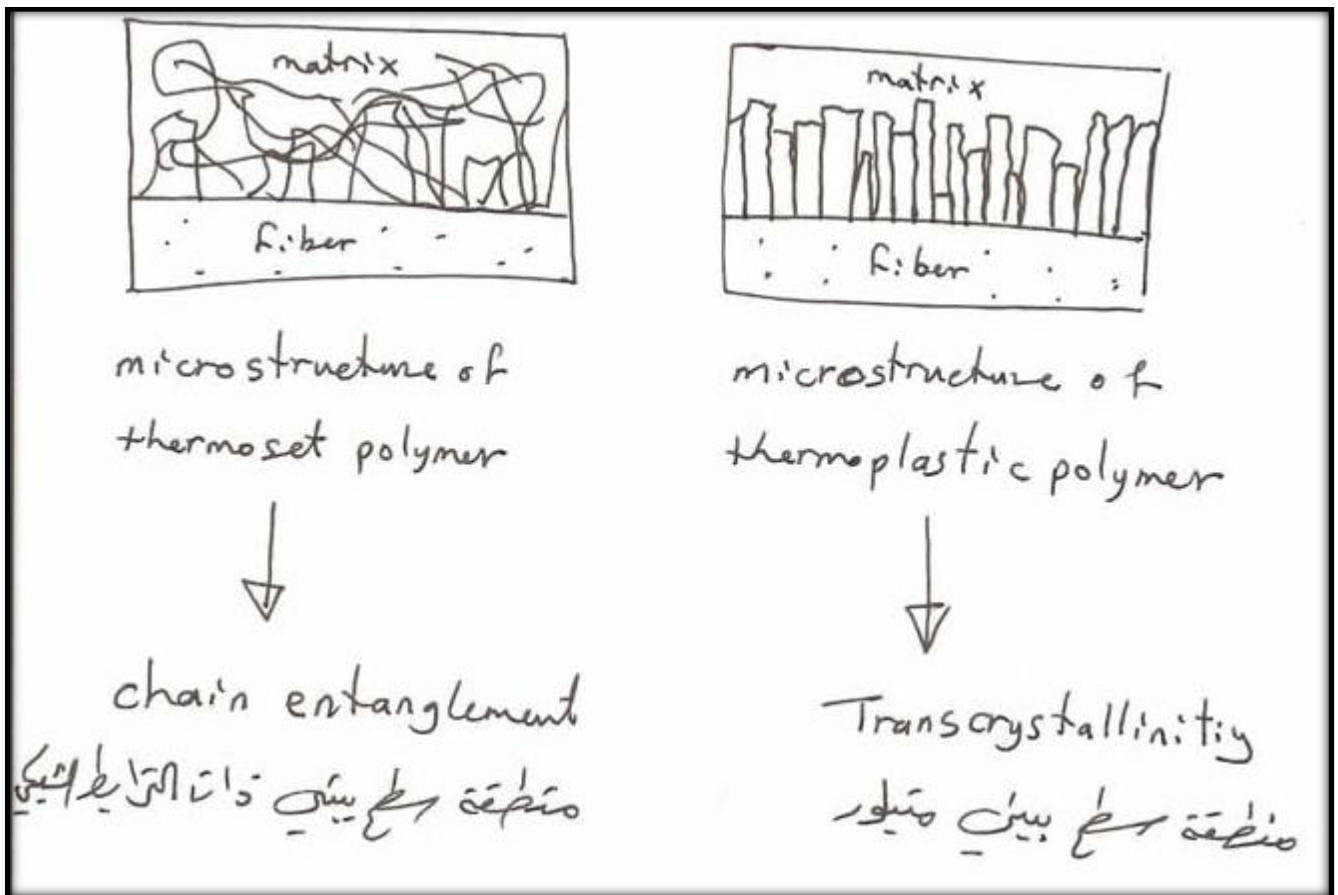 matrix
fiber
microstructure of
thermoset polymer
chain entanglement
منطقة سطح بيني ذات الترابط الشبكي
matrix
fiber
microstructure of
thermoplastic polymer
Transcrystallinitiy
منطقة سطح بيني متبلور